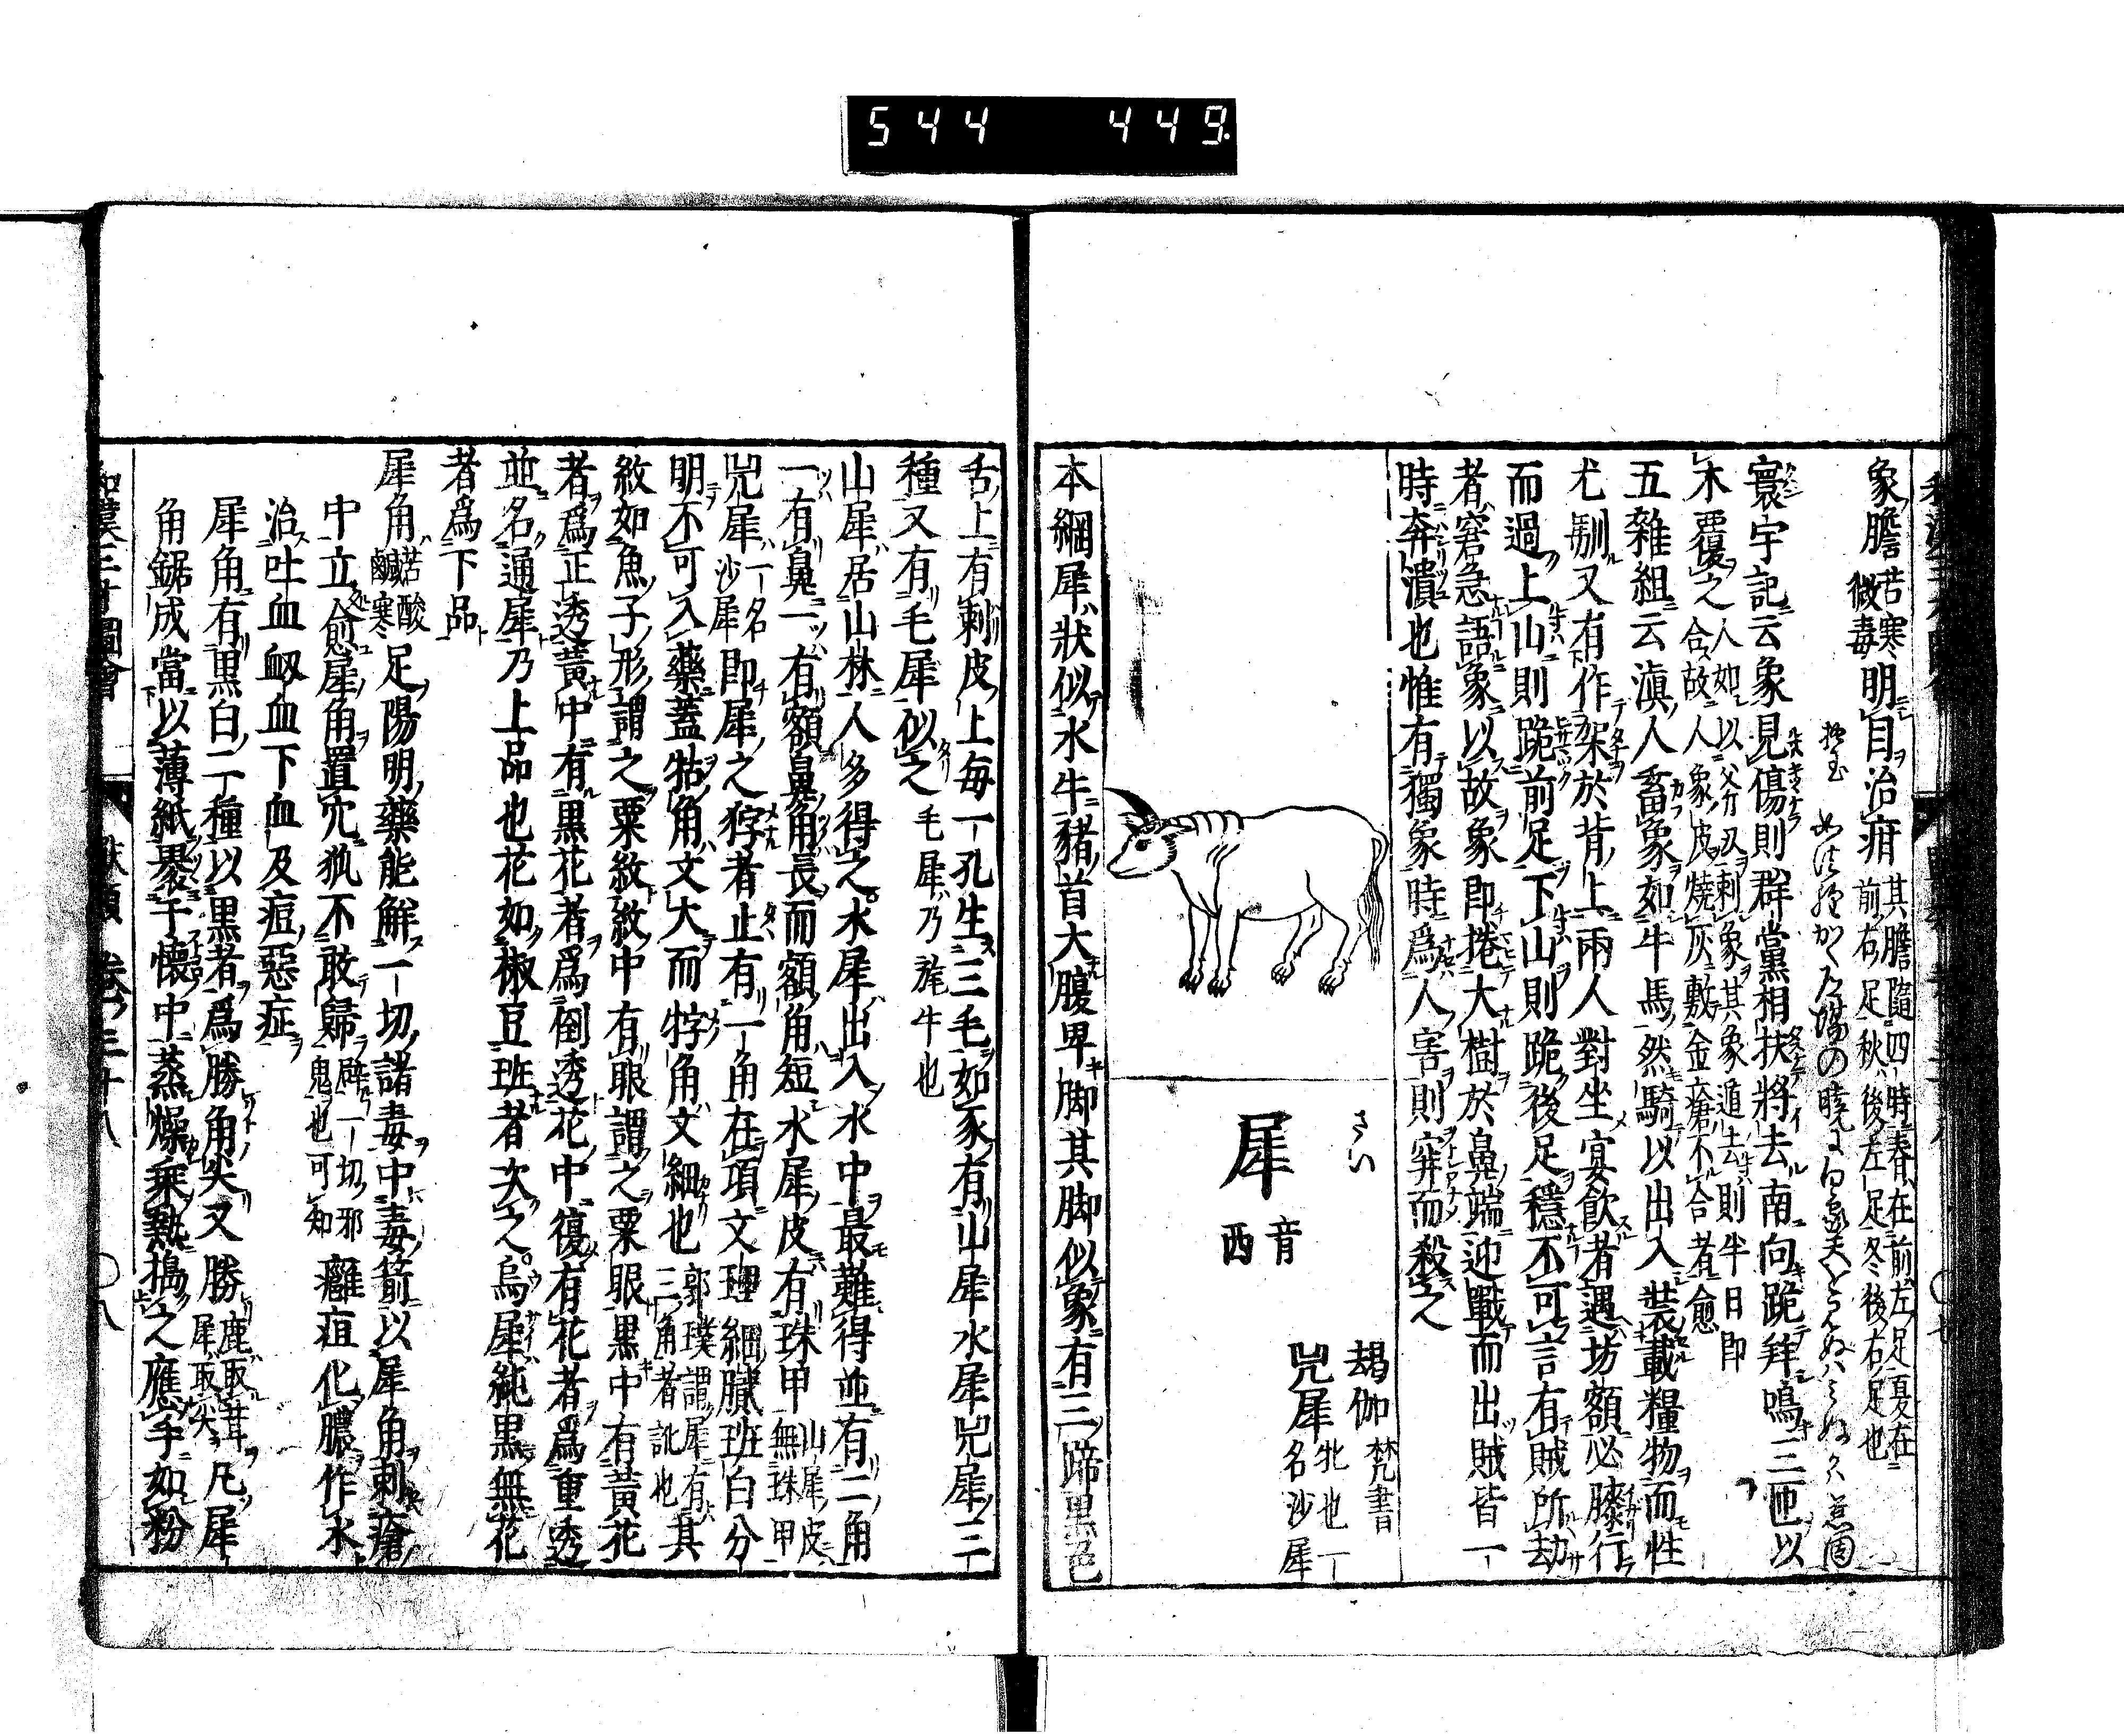 544 449
象膽 苦寒微毒 明目治疳 其膽隨四時春在前左足夏在前右足秋後左足冬後右足也
寰宇記云象見傷則群黨相扶將去南向跪拜鳴三匝以
木覆之
五雜組云滇人畜象如牛馬然騎以出入裝載糧物而性
尤馴又有作架於背上兩人對坐宴飲者遇坊額必膝行
而過上山則跪前足下山則跪後足穩不可言有賊所劫
者窘急語象以故象即捲大樹於鼻端迎戰而出賊皆一
時奔潰也惟有獨象時爲人害則穽而殺之
さい
犀 音西
朅伽 梵書
兕犀 牝也一名沙犀
本綱犀狀似水牛猪首大腹卑脚其脚似象有三蹄黒色
舌上有刺皮上每一孔生三毛如豕有山犀水犀兕犀三
種又有毛犀似之 毛犀乃旄牛也
山犀居山林人多得之水犀出入水中最難得並有二角
一有鼻一有額鼻角長而額角短水犀皮有珠甲 山犀皮無珠甲
兕犀 一名沙犀 即犀之牸者止有一角在項文理細膩班白分
明不可入藥蓋牯角文大而牸角文細也 郭璞謂犀有三角者訛也 其
紋如魚子形謂之粟紋紋中有眼謂之粟眼黒中有黃花
者爲正透黃中有黒花者爲倒透花中復有花者爲重透
並名通犀乃上品也花如椒豆班者次之烏犀純黒無花
者爲下品
犀角 苦酸鹹寒 足陽明藥能解一切諸毒中毒箭以犀角刺瘡
中立愈犀角置穴狐不敢歸 辟一切邪鬼也可知 癰疽化膿作水
治吐血衂血下血及痘惡症
犀角有黒白二種以黒者爲勝角尖又勝 鹿取茸犀取尖 凡犀
角鋸成當以薄紙褁于懷中蒸燥乘熱搗之應手如粉
和漢三才圖會 獸類 卷之三十八 〇八